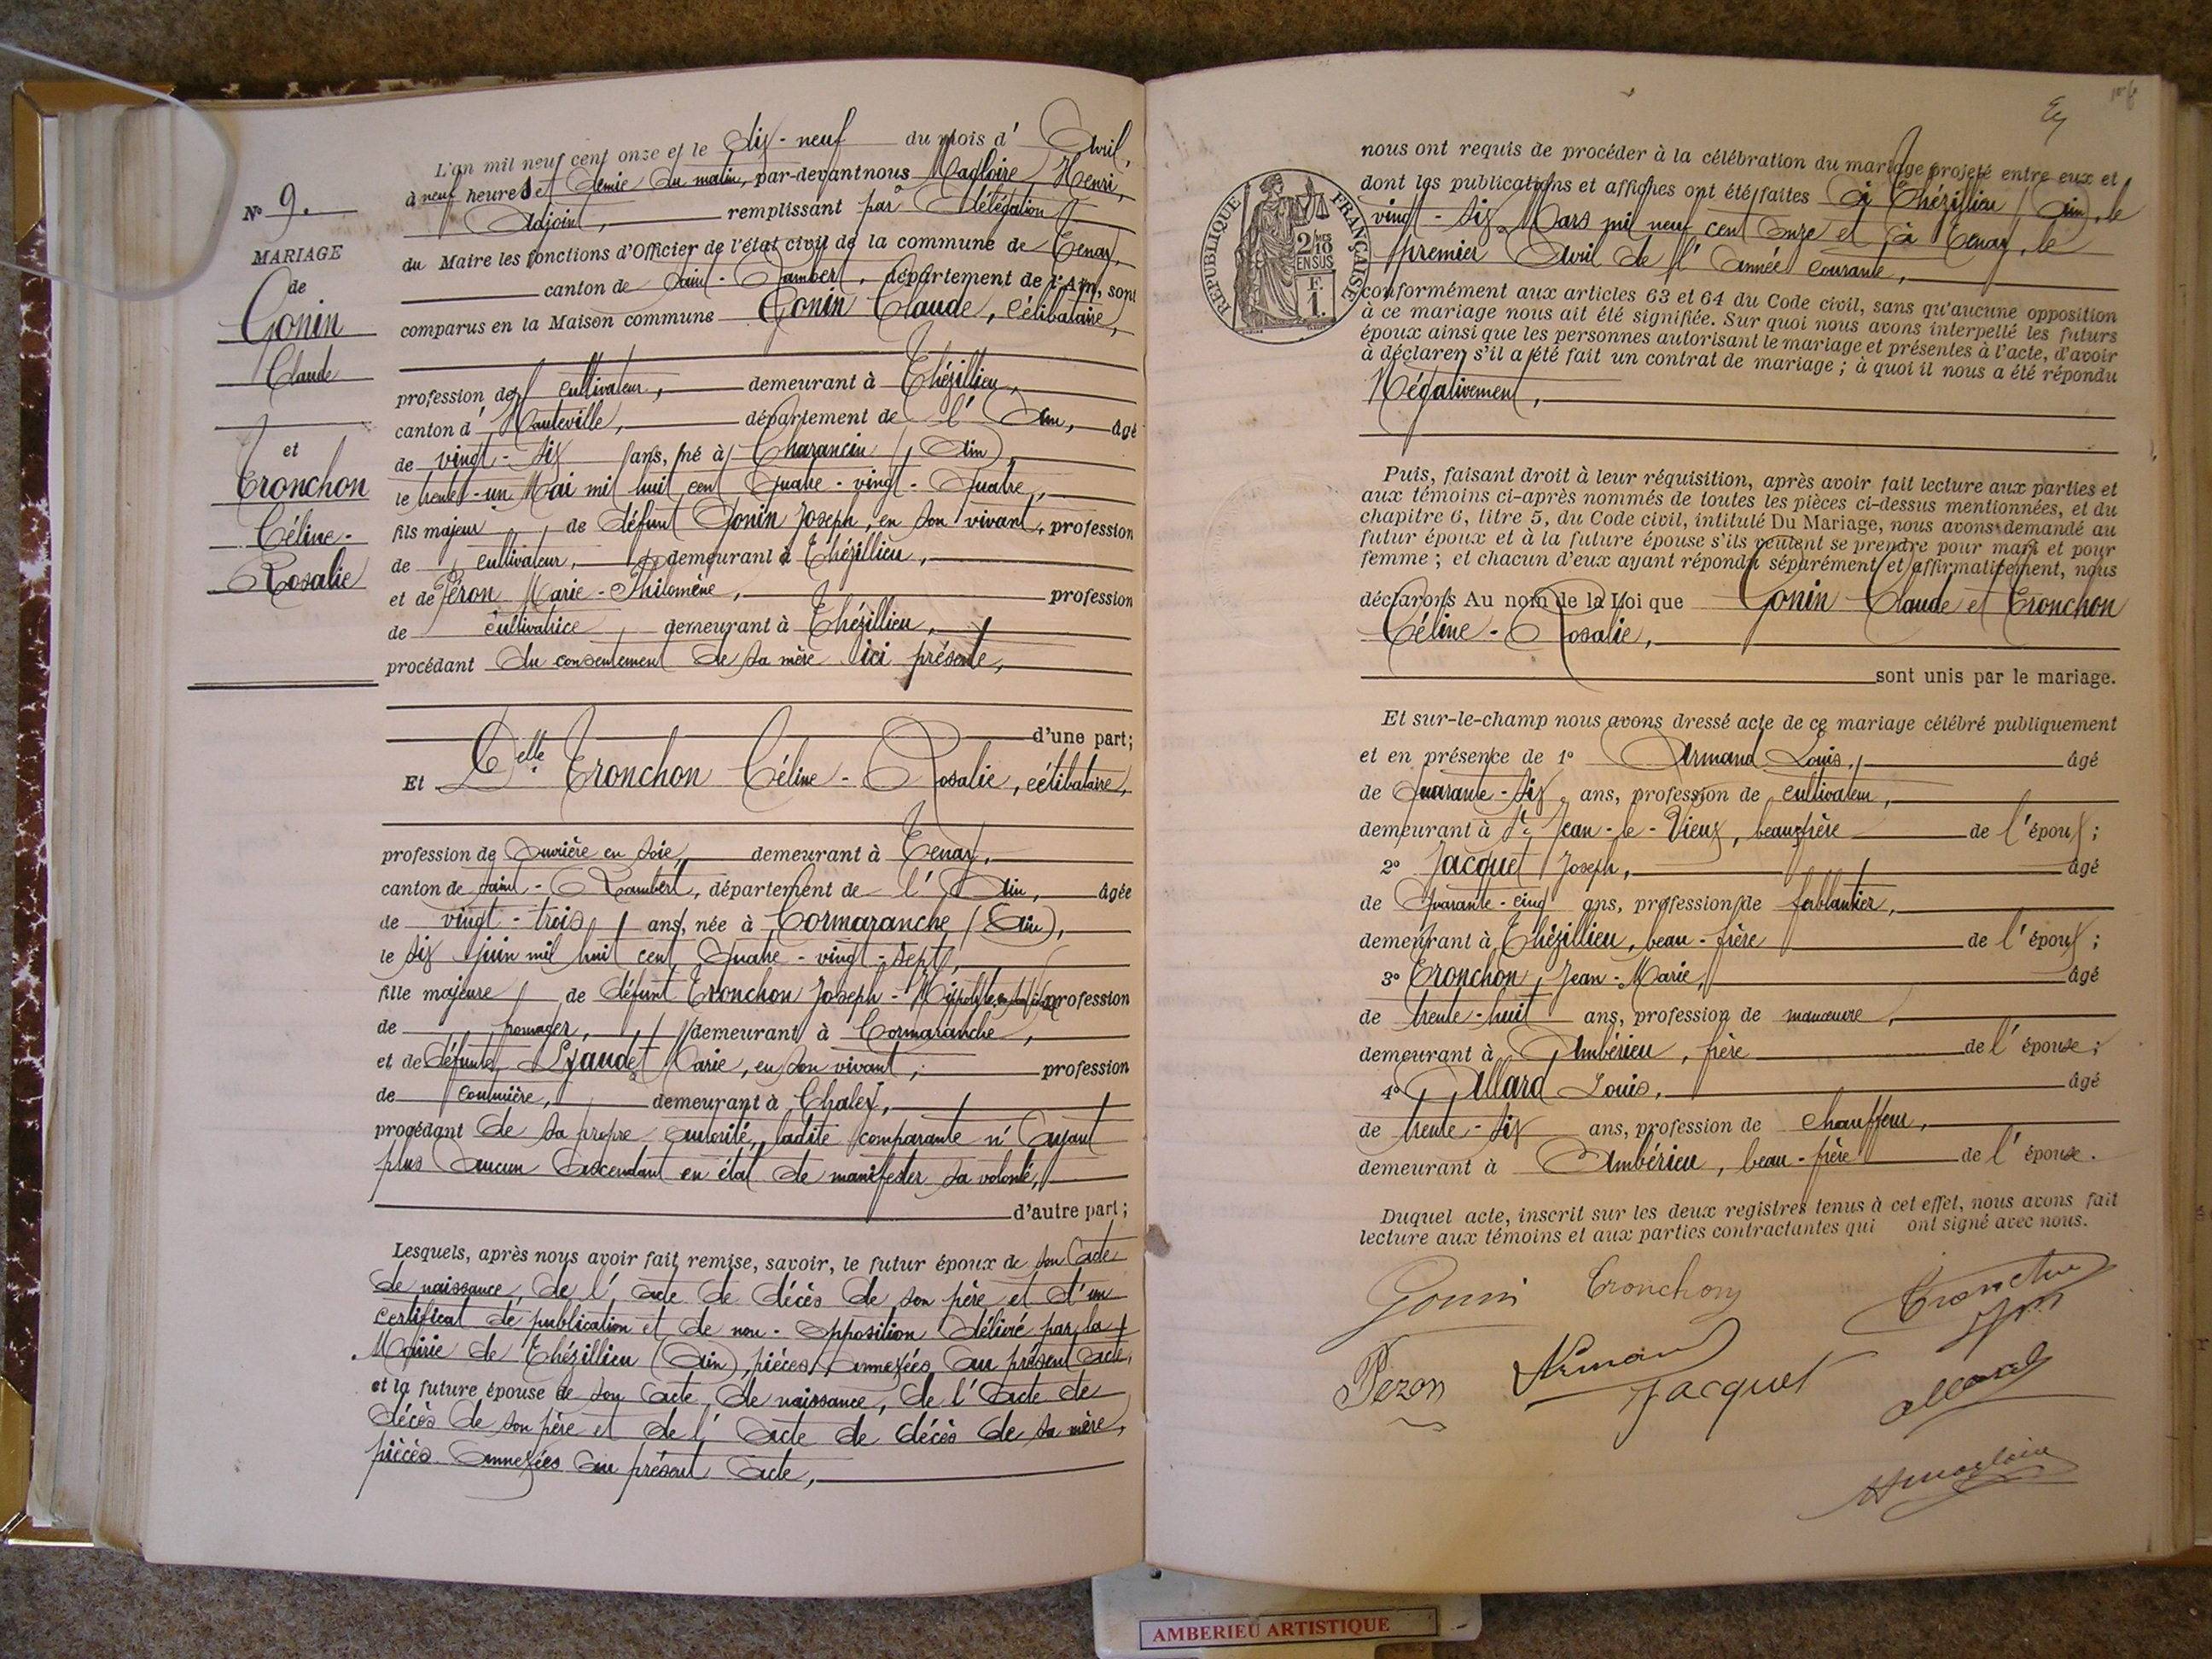 N° 9.
MARIAGE
de
Gonin
Claude
et
Tronchon
Céline-
Rosalie
L'an mil neuf cent onze et le dix-neuf du mois d'Avril,
à neuf heures et demie du matin, par-devant nous Magloire Henri,
Adjoint, remplissant par délégation
du Maire les fonctions d'Officier de l'état civil de la commune de Tenay,
canton de Saint-Rambert, département de l'Ain, sont
comparus en la Maison commune Gonin Claude, célibataire,
profession de cultivateur, demeurant à Thézillieu,
canton d'Hauteville, département de l'Ain, âgé
de vingt-six ans, né à Charancin (Ain),
le trente-un Mai mil huit cent quatre-vingt-quatre,
fils majeur de défunt Gonin Joseph, en son vivant, profession
de cultivateur, demeurant à Thézillieu,
et de Péron Marie-Philomène, profession
de cultivatrice, demeurant à Thézillieu,
procédant du consentement de sa mère ici présente,
d'une part;
Et Delle Tronchon Céline-Rosalie, célibataire,
profession de ouvrière en soie, demeurant à Tenay,
canton de Saint-Rambert, département de l'Ain, âgée
de vingt-trois ans, née à Cormaranche (Ain),
le six juin mil huit cent quatre-vingt-sept,
fille majeure de défunt Tronchon Joseph-Hippolyte, en son vivant profession
de fromager, demeurant à Cormaranche,
et de défunte Marie, en son vivant, profession
de demeurant à Chaley,
procédant de sa propre autorité, ladite comparante n'ayant
plus aucun ascendant en état de manifester sa volonté,
d'autre part;
Lesquels, après nous avoir fait remise, savoir, le futur époux de son acte
de naissance, de l'acte de décès de son père et d'un
certificat de publication et de non-opposition délivré par la
Mairie de Thézillieu (Ain), pièces annexées au présent acte,
et la future épouse de son acte de naissance, de l'acte de
décès de son père et de l'acte de décès de sa mère,
pièces annexées au présent acte,
nous ont requis de procéder à la célébration du mariage projeté entre eux et
dont les publications et affiches ont été faites à Thézillieu (Ain), le
vingt-six Mars mil neuf cent onze et à Tenay, le
premier Avril de l'année courante,
RÉPUBLIQUE FRANÇAISE
2/10
EN SUS
F.
1.
conformément aux articles 63 et 64 du Code civil, sans qu'aucune opposition
à ce mariage nous ait été signifiée. Sur quoi nous avons interpellé les futurs
époux ainsi que les personnes autorisant le mariage et présentes à l'acte, d'avoir
à déclarer s'il a été fait un contrat de mariage; à quoi il nous a été répondu
Négativement,
Puis, faisant droit à leur réquisition, après avoir fait lecture aux parties et
aux témoins ci-après nommés de toutes les pièces ci-dessus mentionnées, et du
chapitre 6, titre 5, du Code civil, intitulé Du Mariage, nous avons demandé au
futur époux et à la future épouse s'ils veulent se prendre pour mari et pour
femme; et chacun d'eux ayant répondu séparément et affirmativement, nous
déclarons Au nom de la Loi que Gonin Claude et Tronchon
Céline-Rosalie,
sont unis par le mariage.
Et sur-le-champ nous avons dressé acte de ce mariage célébré publiquement
et en présence de 1° Armand Louis, âgé
de quarante-six ans, profession de cultivateur,
demeurant à St Jean-le-Vieux, beau-frère de l'époux;
2° Jacquet Joseph, âgé
de quarante-cinq ans, profession de ferblantier,
demeurant à Thézillieu, beau-frère de l'époux;
3° Tronchon Jean-Marie, âgé
de trente-huit ans, profession de manœuvre,
demeurant à Ambérieu, frère de l'épouse;
4° Allard Louis, âgé
de trente-six ans, profession de chauffeur,
demeurant à Ambérieu, beau-frère de l'épouse.
Duquel acte, inscrit sur les deux registres tenus à cet effet, nous avons fait
lecture aux témoins et aux parties contractantes qui ont signé avec nous.
Gonin Tronchon Tronchon
Pezon Armand Jacquet Allard
Hmagloire
AMBERIEU ARTISTIQUE